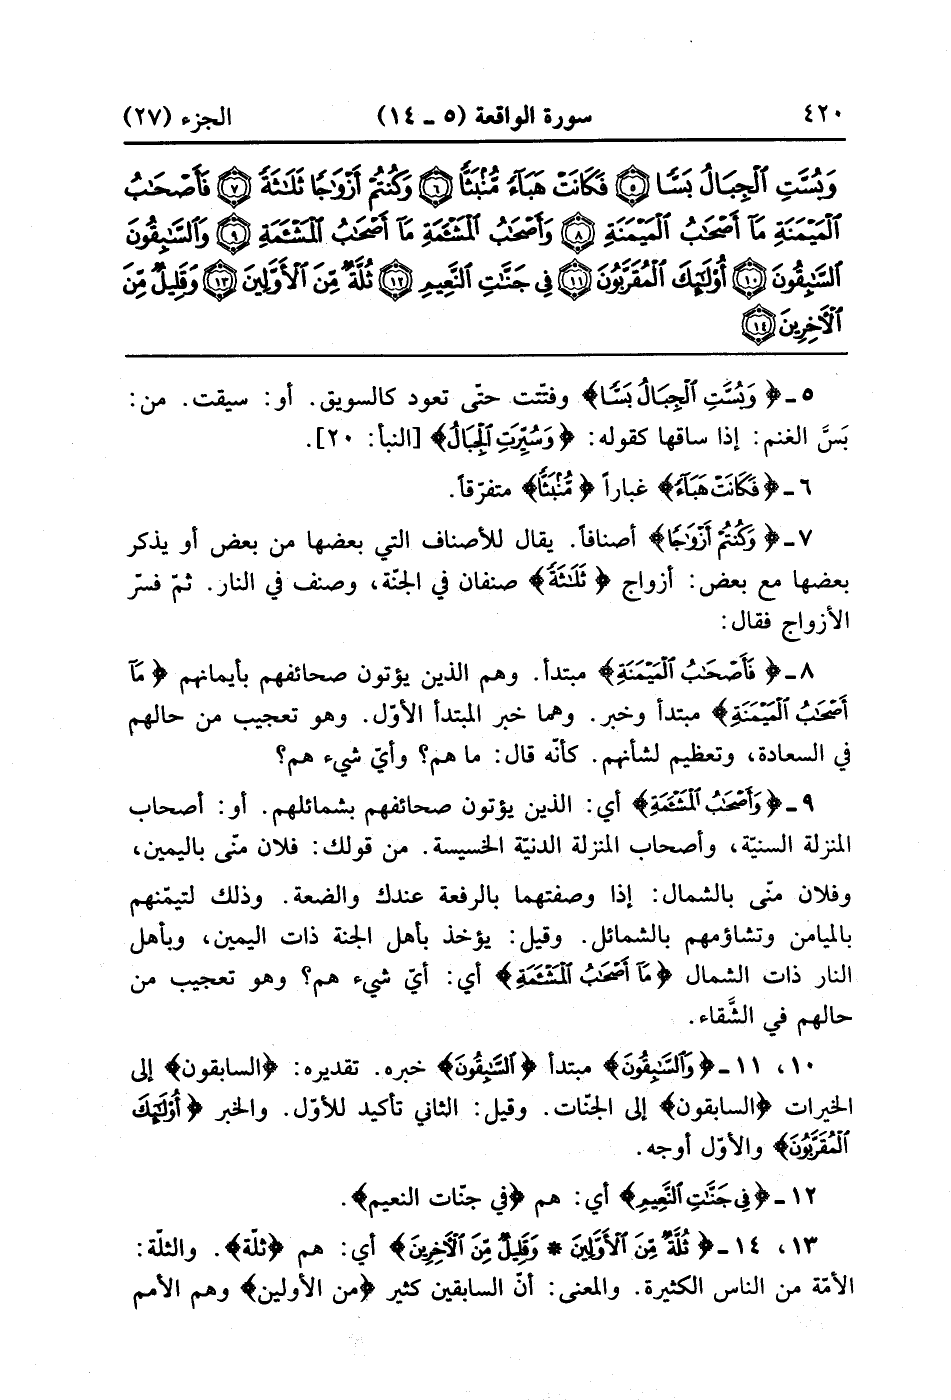 ٤٢٠ سورة الواقعة (٥ ـ ١٤) الجزء (٢٧)
وَبُسَّتِ ٱلْجِبَالُ بَسًّا ۝٥ فَكَانَتْ هَبَآءً مُّنۢبَثًّا ۝٦ وَكُنتُمْ أَزْوَٰجًا ثَلَٰثَةً ۝٧ فَأَصْحَٰبُ
ٱلْمَيْمَنَةِ مَآ أَصْحَٰبُ ٱلْمَيْمَنَةِ ۝٨ وَأَصْحَٰبُ ٱلْمَشْـَٔمَةِ مَآ أَصْحَٰبُ ٱلْمَشْـَٔمَةِ ۝٩ وَٱلسَّٰبِقُونَ
ٱلسَّٰبِقُونَ ۝١٠ أُو۟لَٰٓئِكَ ٱلْمُقَرَّبُونَ ۝١١ فِى جَنَّٰتِ ٱلنَّعِيمِ ۝١٢ ثُلَّةٌ مِّنَ ٱلْأَوَّلِينَ ۝١٣ وَقَلِيلٌ مِّنَ
ٱلْءَاخِرِينَ ۝١٤
٥ ـ ﴿وَبُسَّتِ ٱلْجِبَالُ بَسًّا﴾ وفتّتت حتّى تعود كالسويق. أو: سيقت. من:
بَسَّ الغنم: إذا ساقها كقوله: ﴿وَسُيِّرَتِ ٱلْجِبَالُ﴾ [النبأ: ٢٠].
٦ ـ ﴿فَكَانَتْ هَبَآءً﴾ غباراً ﴿مُّنۢبَثًّا﴾ متفرّقاً.
٧ ـ ﴿وَكُنتُمْ أَزْوَٰجًا﴾ أصنافاً. يقال للأصناف التي بعضها من بعض أو يذكر
بعضها مع بعض: أزواج ﴿ثَلَٰثَةً﴾ صنفان في الجنّة، وصنف في النار. ثمّ فسّر
الأزواج فقال:
٨ ـ ﴿فَأَصْحَٰبُ ٱلْمَيْمَنَةِ﴾ مبتدأ. وهم الذين يؤتون صحائفهم بأيمانهم ﴿مَآ
أَصْحَٰبُ ٱلْمَيْمَنَةِ﴾ مبتدأ وخبر. وهما خبر المبتدأ الأوّل. وهو تعجيب من حالهم
في السعادة، وتعظيم لشأنهم. كأنّه قال: ما هم؟ وأيّ شيء هم؟
٩ ـ ﴿وَأَصْحَٰبُ ٱلْمَشْـَٔمَةِ﴾ أي: الذين يؤتون صحائفهم بشمائلهم. أو: أصحاب
المنزلة السنيّة، وأصحاب المنزلة الدنيّة الخسيسة. من قولك: فلان منّي باليمين،
وفلان منّي بالشمال: إذا وصفتهما بالرفعة عندك والضعة. وذلك لتيمّنهم
بالميامن وتشاؤمهم بالشمائل. وقيل: يؤخذ بأهل الجنة ذات اليمين، وبأهل
النار ذات الشمال ﴿مَآ أَصْحَٰبُ ٱلْمَشْـَٔمَةِ﴾ أي: أيّ شيء هم؟ وهو تعجيب من
حالهم في الشَّقاء.
١٠، ١١ ـ ﴿وَٱلسَّٰبِقُونَ﴾ مبتدأ ﴿ٱلسَّٰبِقُونَ﴾ خبره. تقديره: ﴿السابقون﴾ إلى
الخيرات ﴿السابقون﴾ إلى الجنّات. وقيل: الثاني تأكيد للأوّل. والخبر ﴿أُو۟لَٰٓئِكَ
ٱلْمُقَرَّبُونَ﴾ والأوّل أوجه.
١٢ ـ ﴿فِى جَنَّٰتِ ٱلنَّعِيمِ﴾ أي: هم ﴿في جنّات النعيم﴾.
١٣، ١٤ ـ ﴿ثُلَّةٌ مِّنَ ٱلْأَوَّلِينَ * وَقَلِيلٌ مِّنَ ٱلْءَاخِرِينَ﴾ أي: هم ﴿ثلّة﴾. والثلّة:
الأمّة من الناس الكثيرة. والمعنى: أنّ السابقين كثير ﴿من الأولين﴾ وهم الأمم